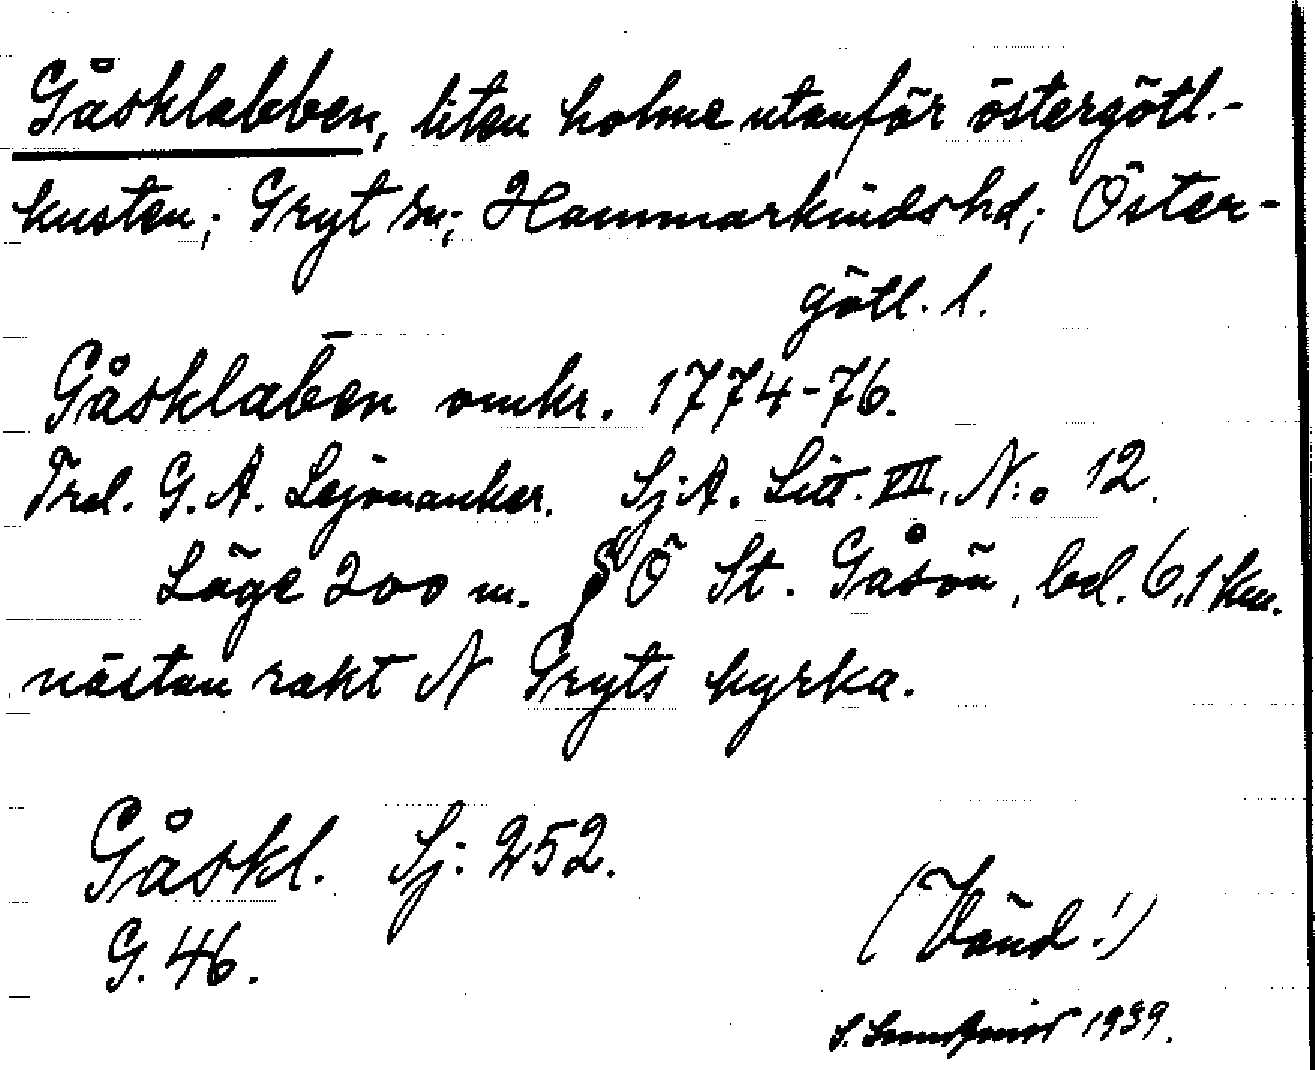 Gåsklabben, liten holme utanför östergötl.-
kusten; Gryt sn; Hammarkinds hd; Öster-
götl. l.
Gåsklab̄en omkr. 1774-76.
Trol. G. A. Lejonanker. Sj:A. Litt. VII. N:o 12.
Läge 200 m. Ö St. Gåsön, bel. 6,1 km.
nästan rakt N Gryts kyrka.
Gåskl. Sj: 252.
G. 46.
(Vänd!)
S. 1939.